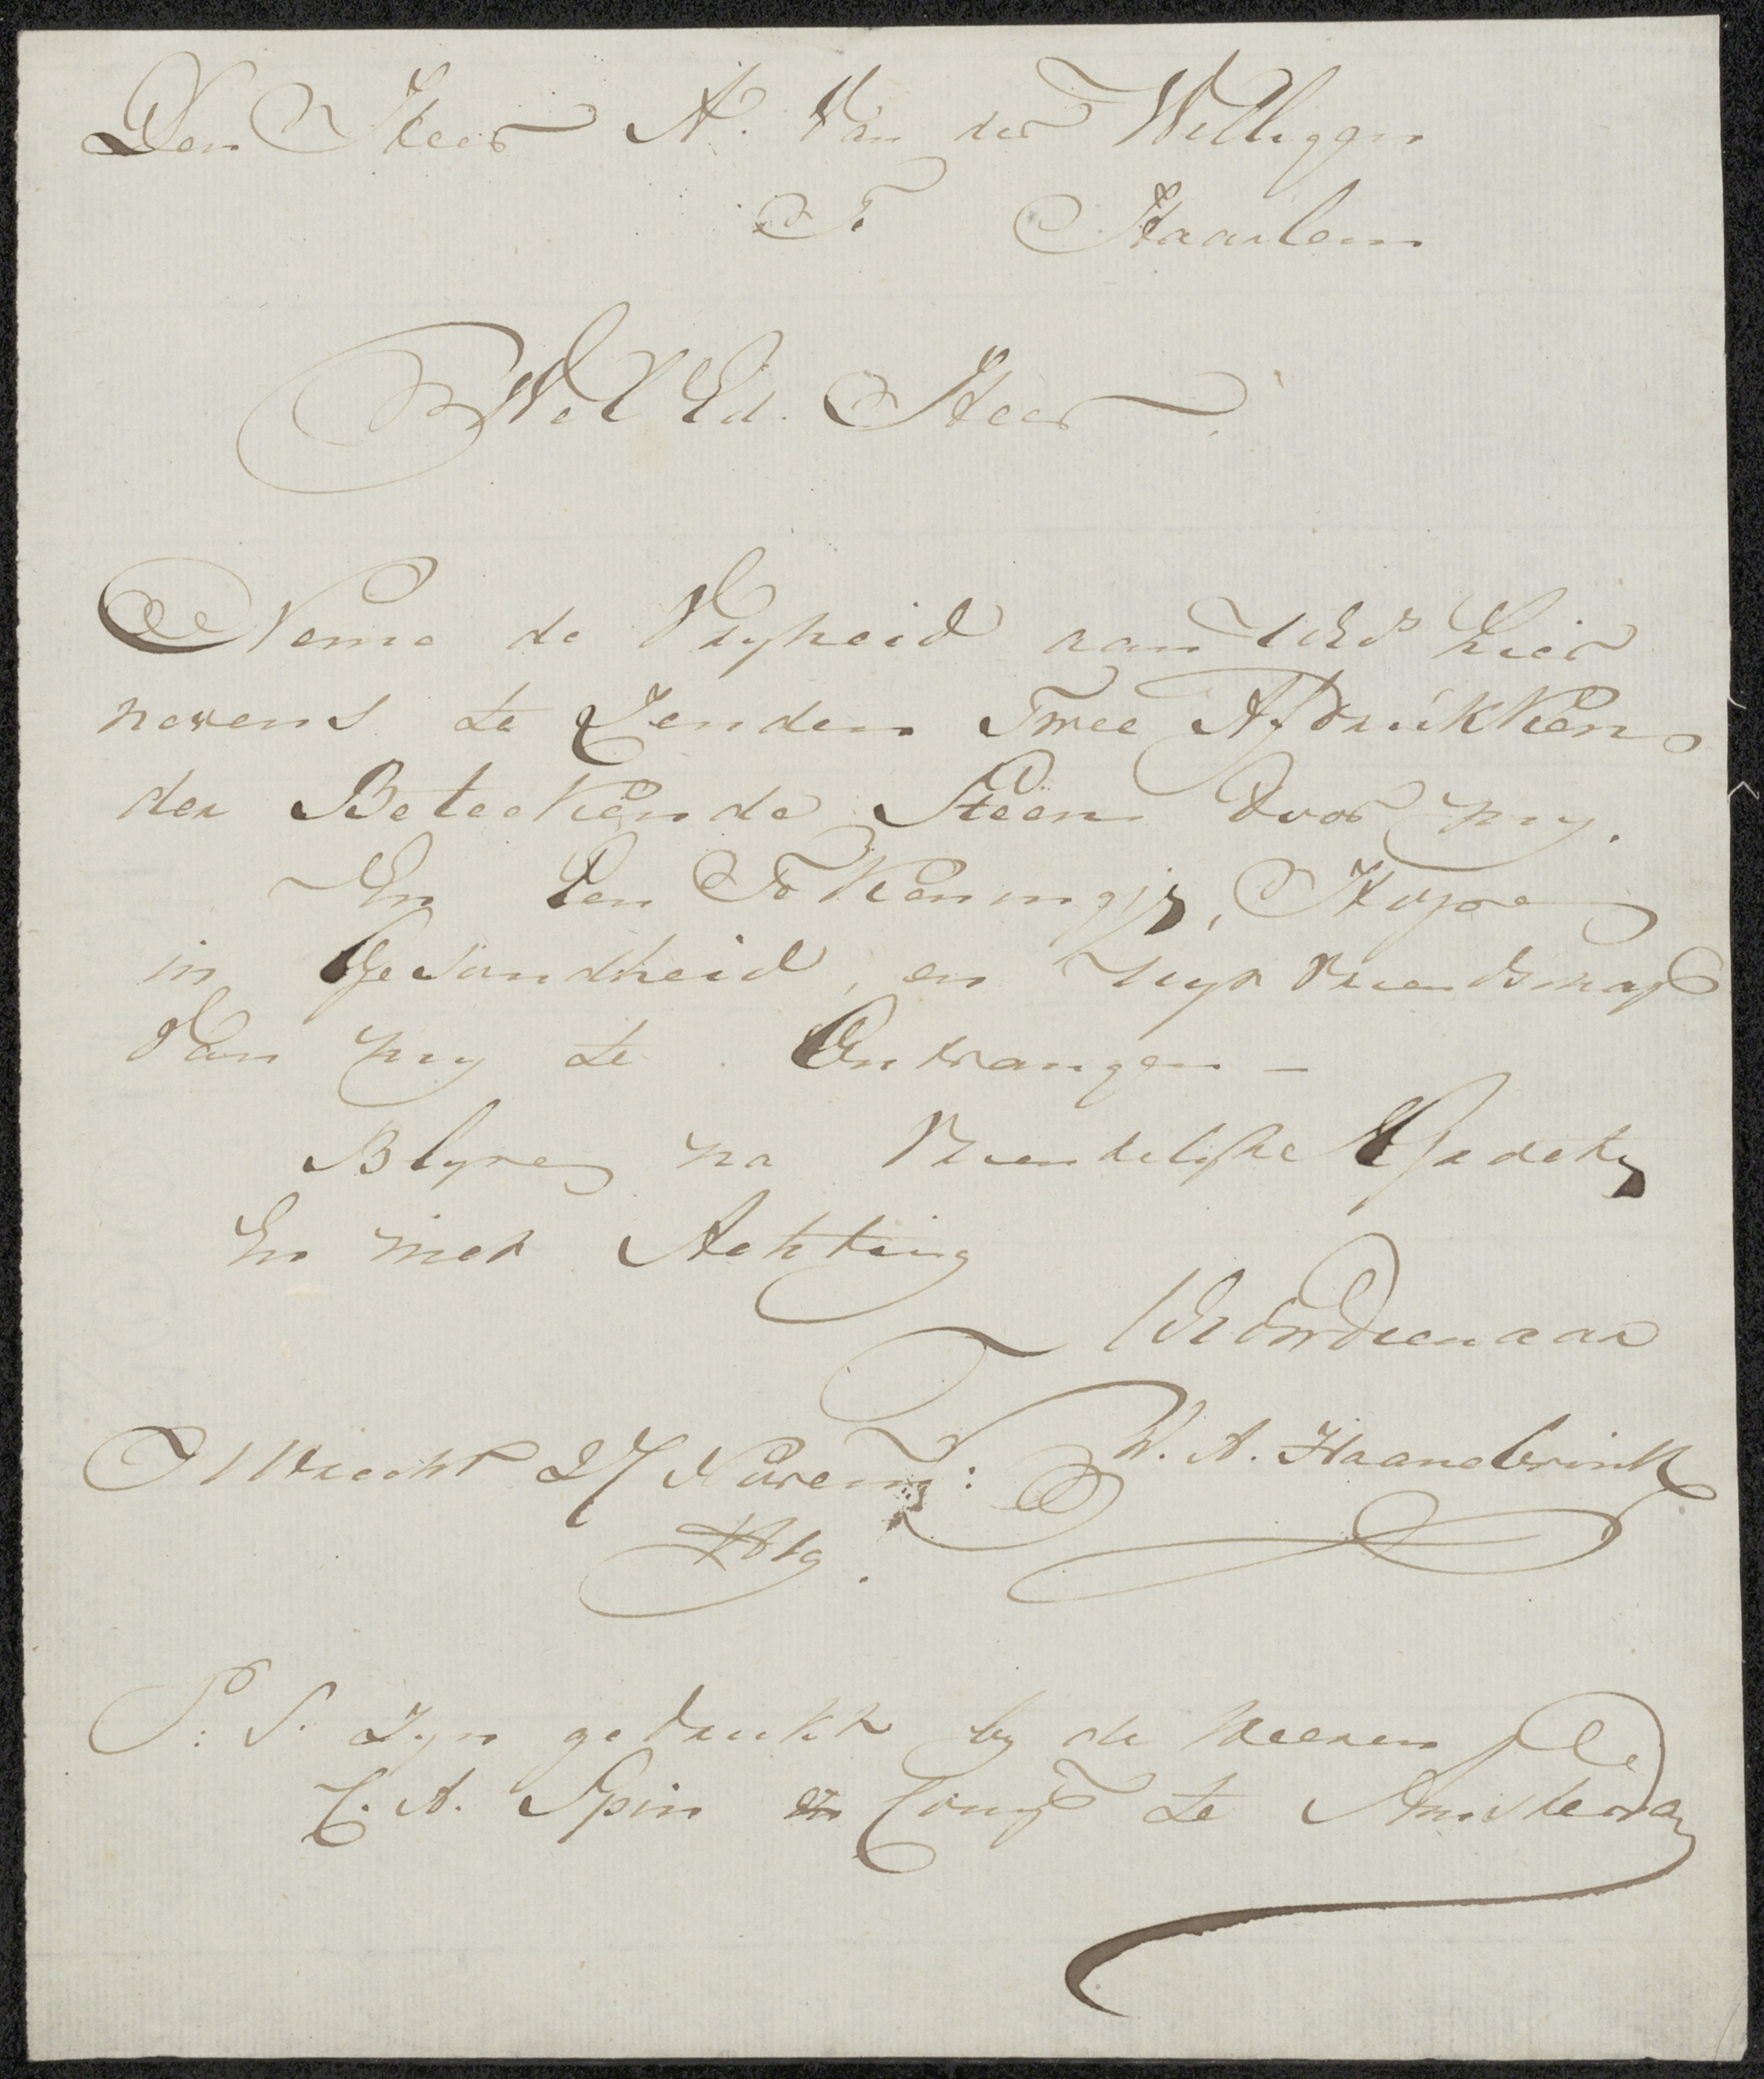 Den Heer A. Van der Willigen
Te Haarlem
Wel Ed. Heer.
Neme de Vryheid aan UEd hier
nevens te Zenden Twee Afdrukken
der Beteekende Steen door my.
En Een Tekeningje, Hope
in Gesondheid, en uyt Vriendschap
Van my te Ontvangen —
Blyve na Vriendelyke
En met Achting
UEd Dw Dienaar
Utrecht 27 Novem:
W. A. Haanebrink
P: S. Zyn gedrukt by de Heeren
C. A. Spin en Comp te Amsterdam